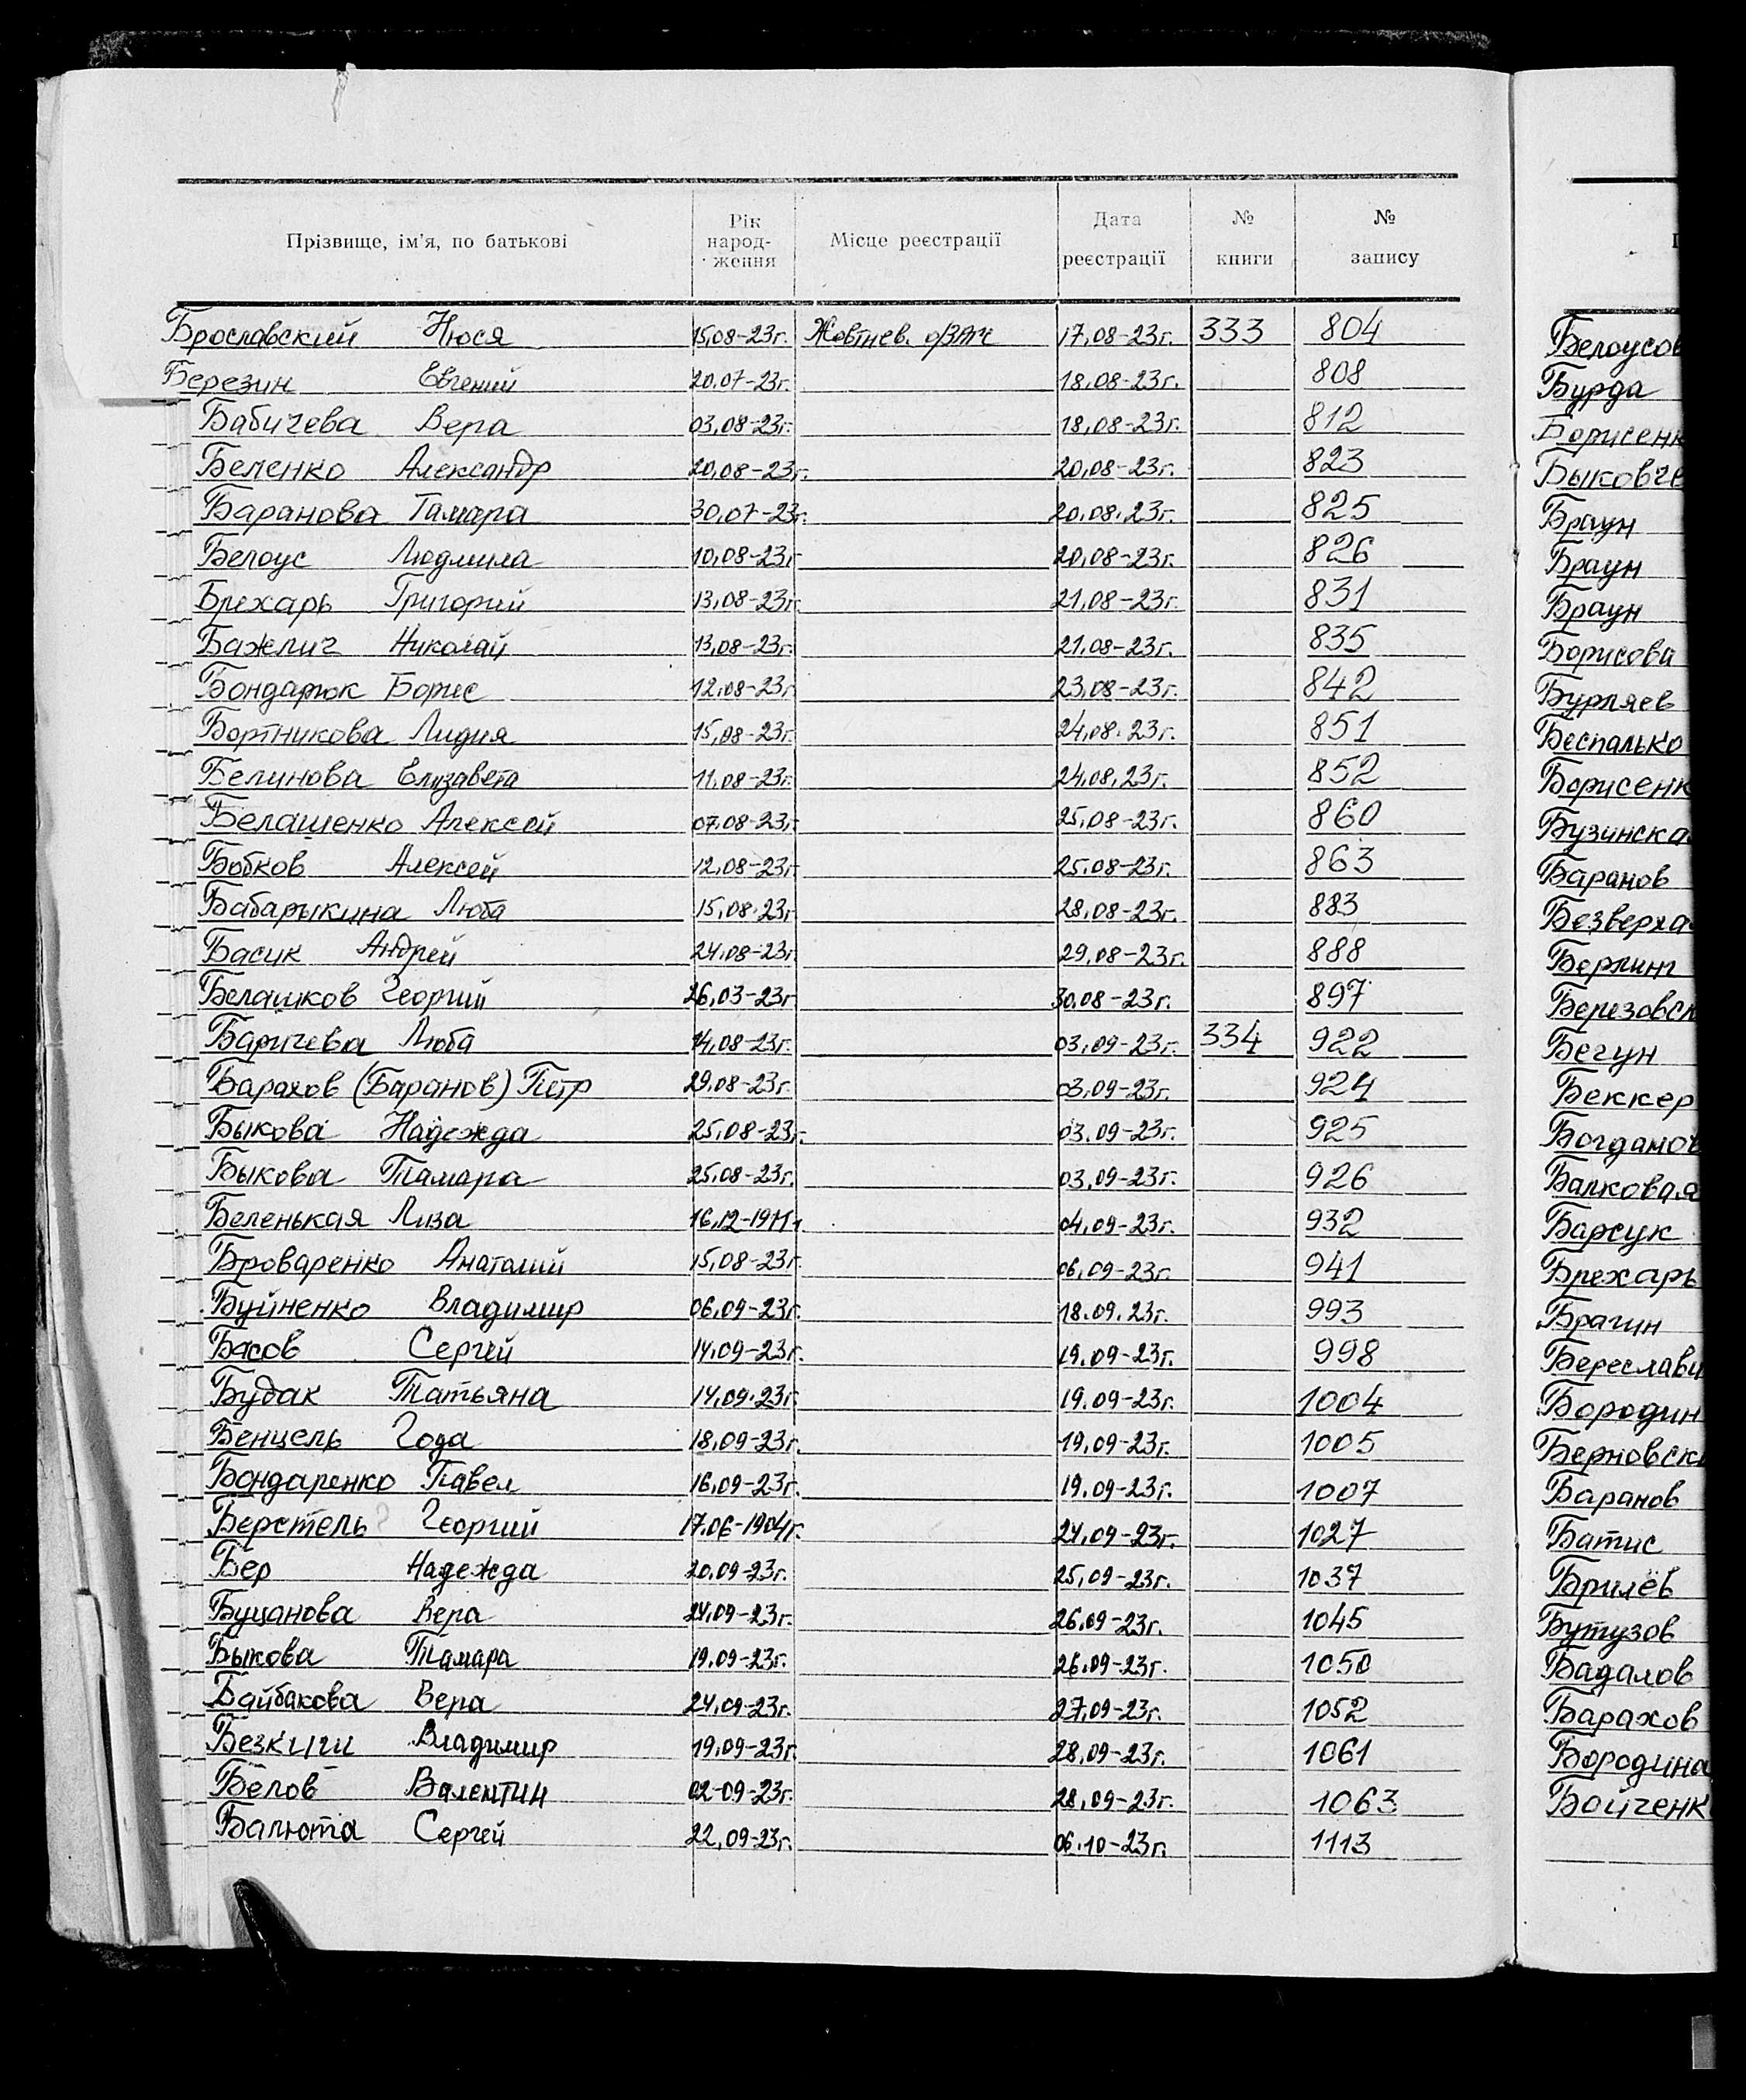 Прізвище, ім'я, по батькові Рік народ- ження Місце реєстрації Дата реєстрації № книги № запису
Брославский Нюся 15,08-23г. Жовтнев. 17,08-23г. 333 804
Березин Евгений 20,07-23г. 18,08-23г. 808
Бабичева Вера 03,08-23г. 18,08-23г. 812
Беленко Александр 20,08-23г. 20,08-23г. 823
Баранова Тамара 30,07-23г. 20,08,23г. 825
Белоус Людмила 10,08-23г 20,08-23г. 826
Брехарь Григорий 13,08-23г. 21,08-23г. 831
Бажлич Николай 13,08-23г. 21,08-23г. 835
Бондарюк Борис 12,08-23г 23,08-23г. 842
Бортникова Лидия 15,08-23г. 24,08.23г. 851
Белинова Елизавета 11,08-23г. 24,08,23г. 852
Белашенко Алексей 07,08-23г 25,08-23г. 860
Бобков Алексей 12,08-23г 25,08-23г. 863
Бабарыкина Люба 15,08.23г 28,08-23г. 883
Басик Андрей 24,08-23г 29,08-23г. 888
Белашков Георгий 26,03-23г 30,08-23г. 897
Баричева Люба 14,08-23г. 03,09-23г. 334 922
Барахов (Баранов) Петр 29,08-23г. 03,09-23г. 924
Быкова Надежда 25,08-23г. 03,09-23г. 925
Быкова Тамара 25,08-23г. 03,09-23г. 926
Беленькая Лиза 16,12-1911г. 04,09-23г. 932
Броваренко Анатолий 15,08-23г. 06,09-23г. 941
Буйненко Владимир 06,09-23г. 18.09.23г. 993
Басов Сергей 14,09-23г. 19.09-23г. 998
Будак Татьяна 14,09.23г 19.09-23г. 1004
Бенцель Года 18,09-23г. 19,09-23г. 1005
Бондаренко Павел 16,09-23г. 19.09-23г. 1007
Берстель Георгий 17.06-1904г. 24,09-23г. 1027
Бер Надежда 20,09-23г. 25,09-23г. 1037
Буцанова Вера 24,09-23г. 26,09-23г. 1045
Быкова Тамара 19.09-23г. 26.09-23г. 1050
Байбакова Вера 24,09-23г. 27,09-23г. 1052
Владимир 19.09-23г. 28,09-23г. 1061
Белов Валентин 02-09-23г. 28,09-23г. 1063
Балюта Сергей 22,09-23г. 06.10-23г. 1113
Белоусов
Бурда
Борисенк
Быковче
Браун
Браун
Браун
Борисова
Бурляев
Беспалько
Борисенк
Бузинска
Баранов
Безверха
Берлинг
Березовск
Бегун
Беккер
Богданов
Балковая
Барсук
Брехарь
Брагин
Береслави
Бородин
Берновски
Баранов
Батис
Брилёв
Бутузов
Бадалов
Барахов
Бородина
Бойченк